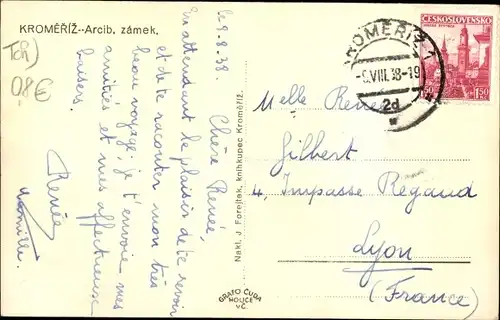 KROMĚŘÍŽ.-Arcib. zámek.
Tch)
0,8€
le 9.8.38.
Chère Renée,
En attendant le plaisir de te revoir
et de te raconter mon très
beau voyage, je t'envoie mes
amitiés et mes affectueux
baisers.
Renée
Nakl. J. Forejtek, knihkupec Kroměříž.
GRAFO ČUDA
HOLICE
v Č.
KROMĚŘÍŽ 1
-9.VIII.38-19
2d
ČESKOSLOVENSKO
1·50
Melle Renée
Gilbert
4, Impasse Regaud
Lyon
(France)